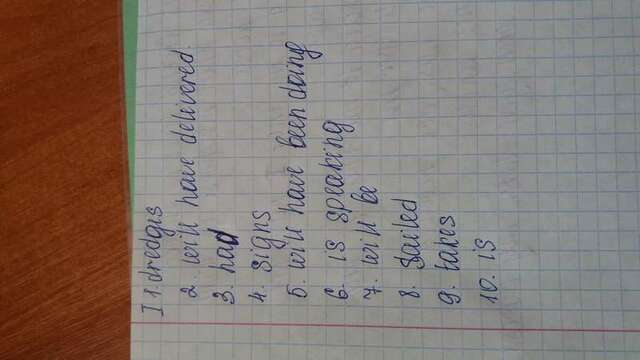 I 1. dredgis
2. will have delivered.
3. had
4. signs
5. will have been doing
6. is speaking
7. will be
8. sailed
9. takes
10. is